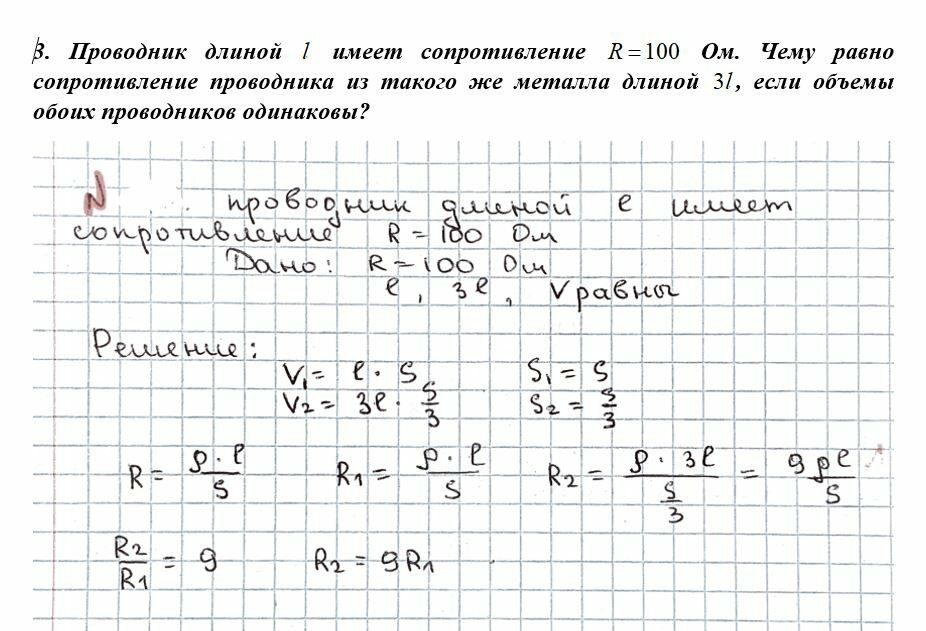 3. Проводник длиной l имеет сопротивление R = 100 Ом. Чему равно
сопротивление проводника из такого же металла длиной 3l, если объемы
обоих проводников одинаковы?
N проводник длиной l имеет
сопротивление R = 100 Ом
Дано: R = 100 Ом
l, 3l, V равны
Решение:
V₁ = l · S S₁ = S
V₂ = 3l · S/3 S₂ = S/3
R = ρ · l / S R₁ = ρ · l / S R₂ = ρ · 3l / (S/3) = 9ρl / S
R₂/R₁ = 9 R₂ = 9R₁